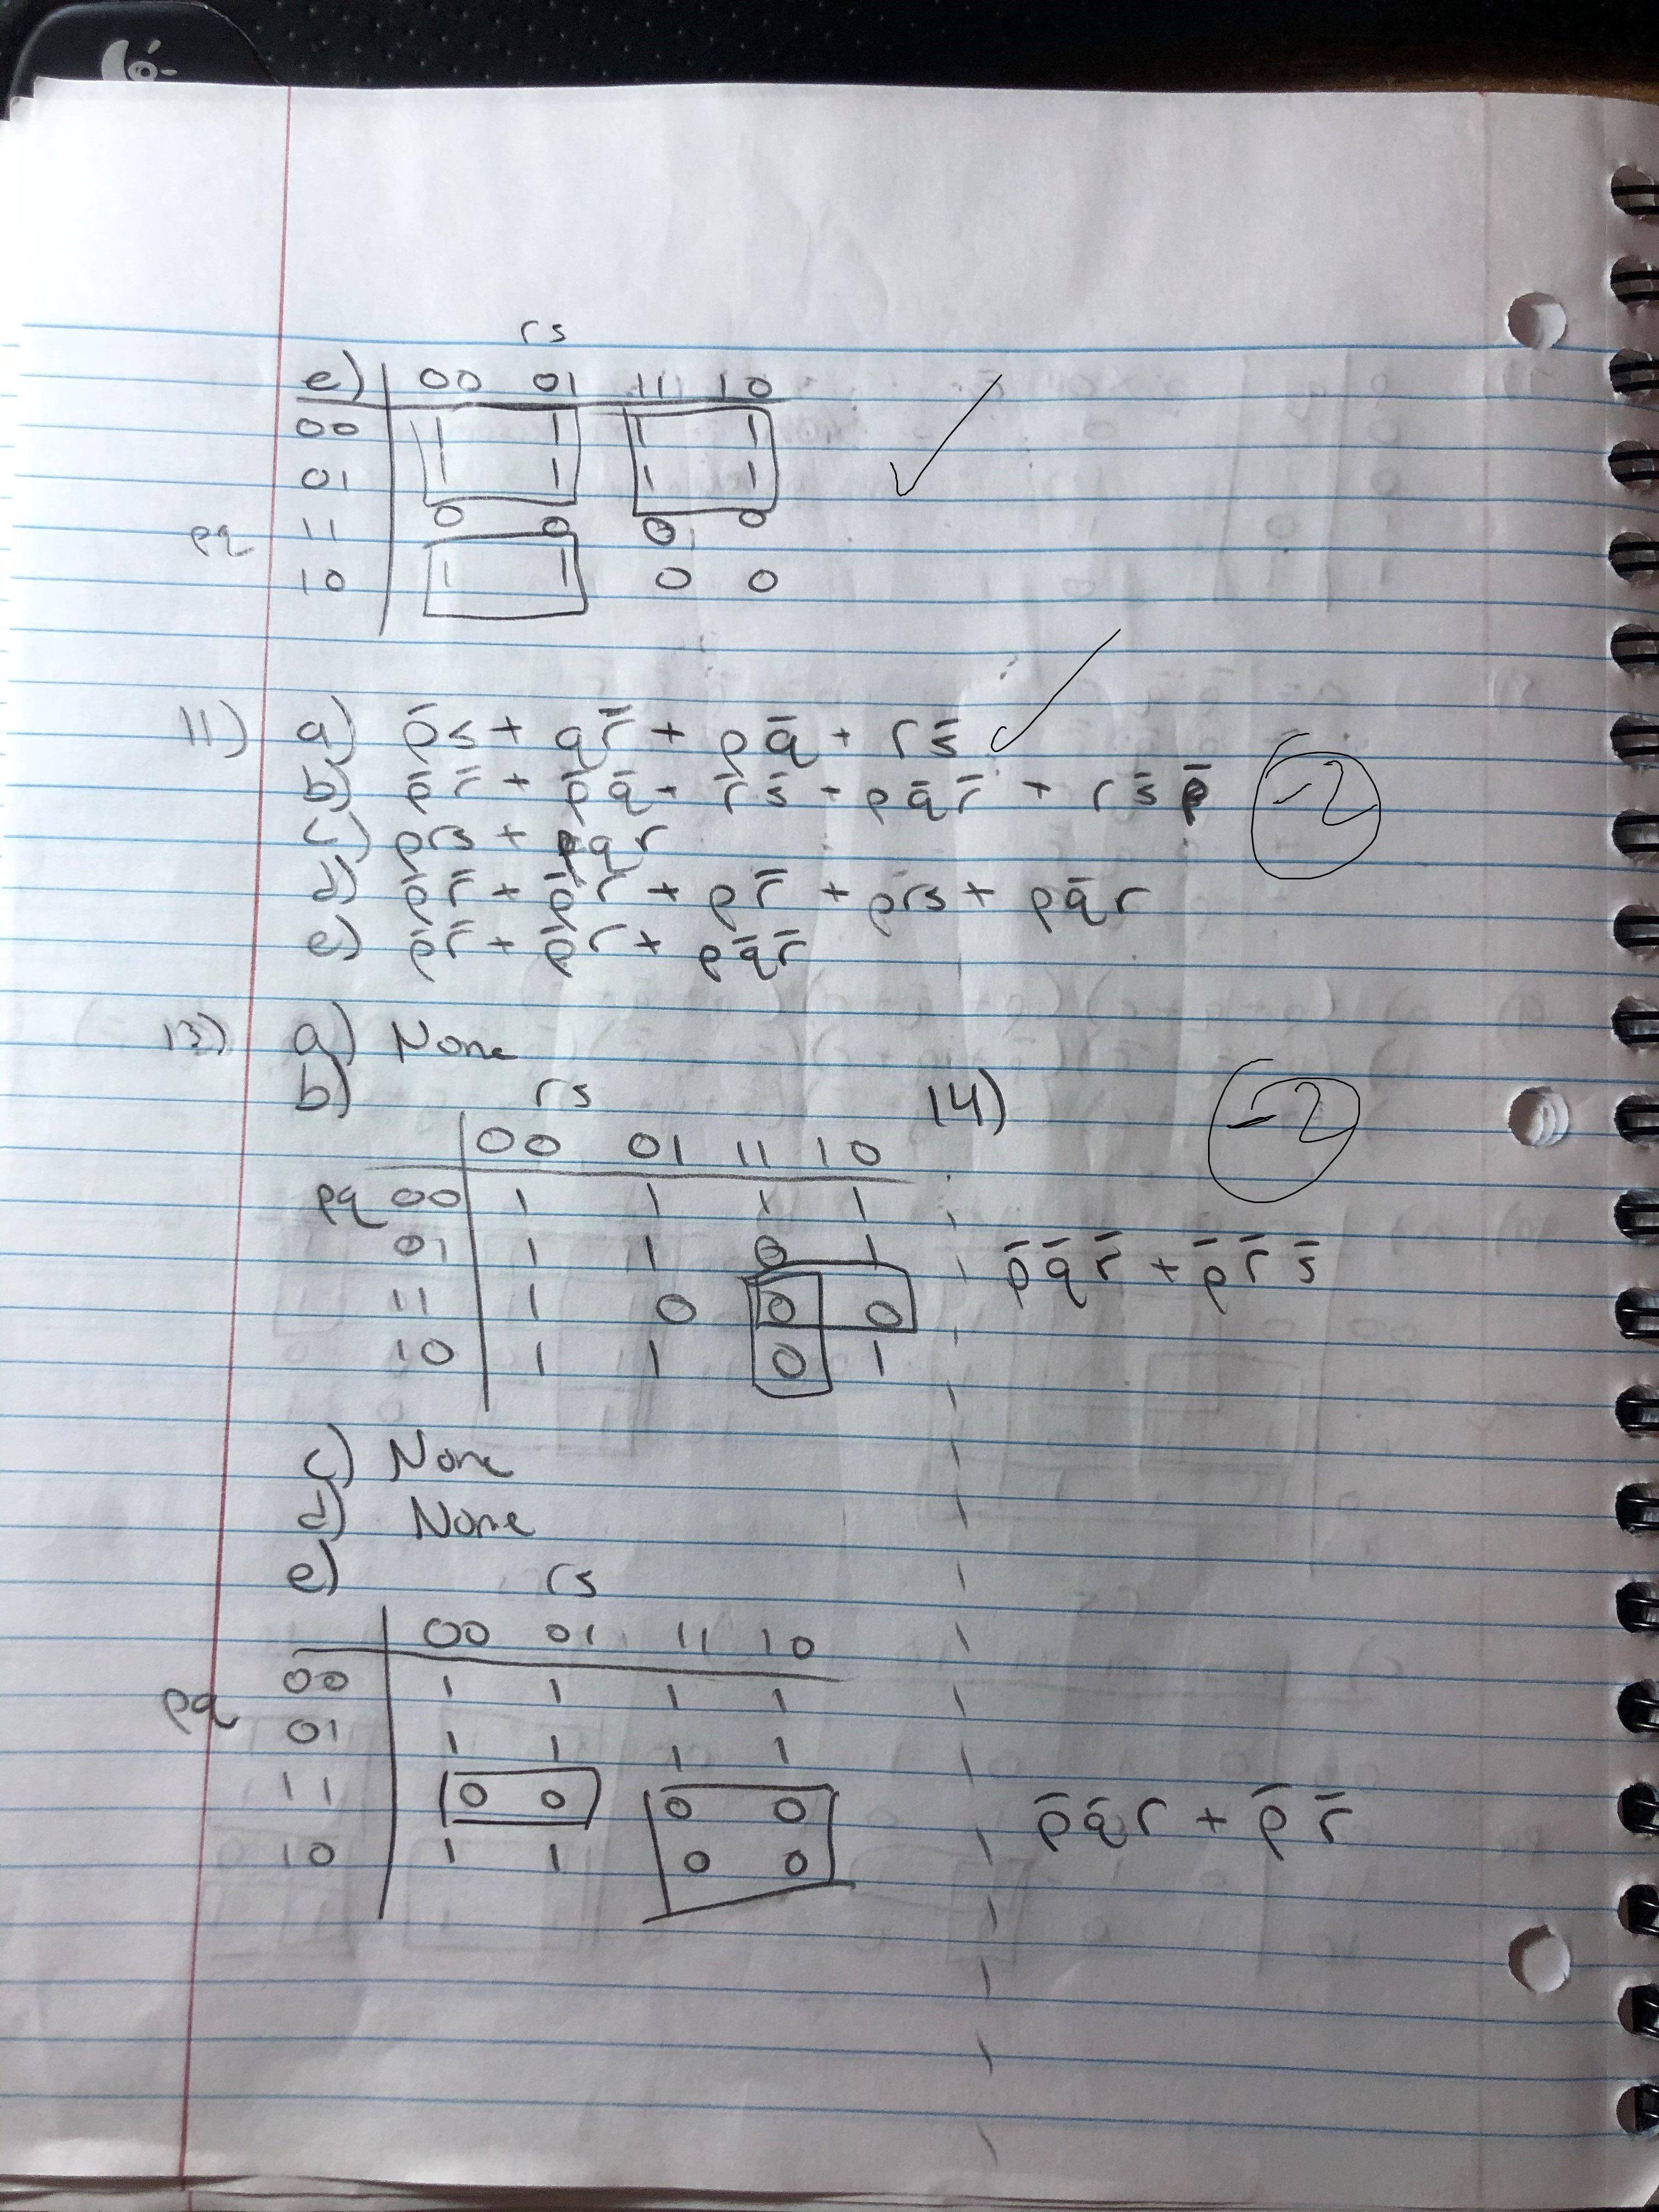 rs
e) 00 01 11 10
00 1 1 1 1
01 1 1 1 1
pq 11 0 0 0 0
10 1 1 0 0
11) a) p̄s + qr̄ + pq̄ + rs̄
b) p̄r̄ + p̄q̄ + r̄s̄ + pq̄r̄ + rs̄p̄
-2
c) prs + pqr
d) p̄r̄ + p̄r + pr̄ + prs + pq̄r
e) p̄r̄ + p̄r + pq̄r̄
13) a) None
b) rs 14)
-2
00 01 11 10
pq 00 1 1 1 1
01 1 1 0 1 p̄q̄r̄ + p̄r̄s̄
11 1 0 0 0
10 1 1 0 1
c) None
d) None
e) rs
00 01 11 10
00 1 1 1 1
pq
01 1 1 1 1
11 0 0 0 0 p̄q̄r + p̄r̄
10 1 1 0 0